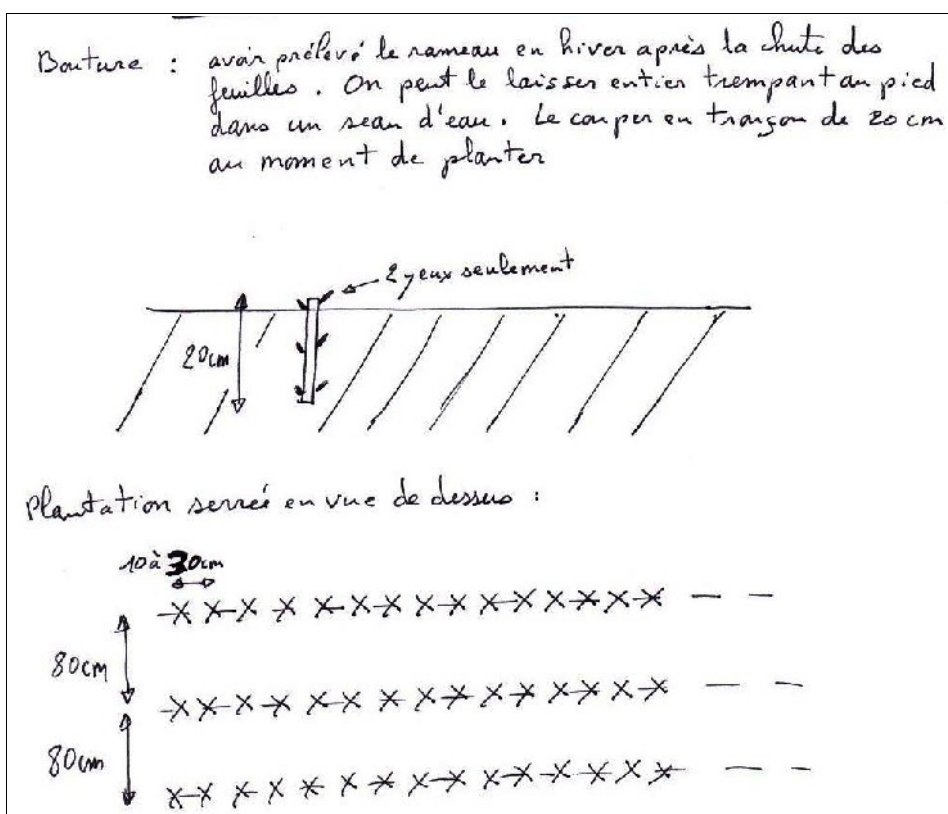 Bouture : avoir prélevé le rameau en hiver après la chute des
feuilles. On peut le laisser entier trempant au pied
dans un seau d'eau. Le couper en tronçon de 20 cm
au moment de planter
2 yeux seulement
20cm
Plantation serrée en vue de dessus :
10 à 30cm
80cm
80cm